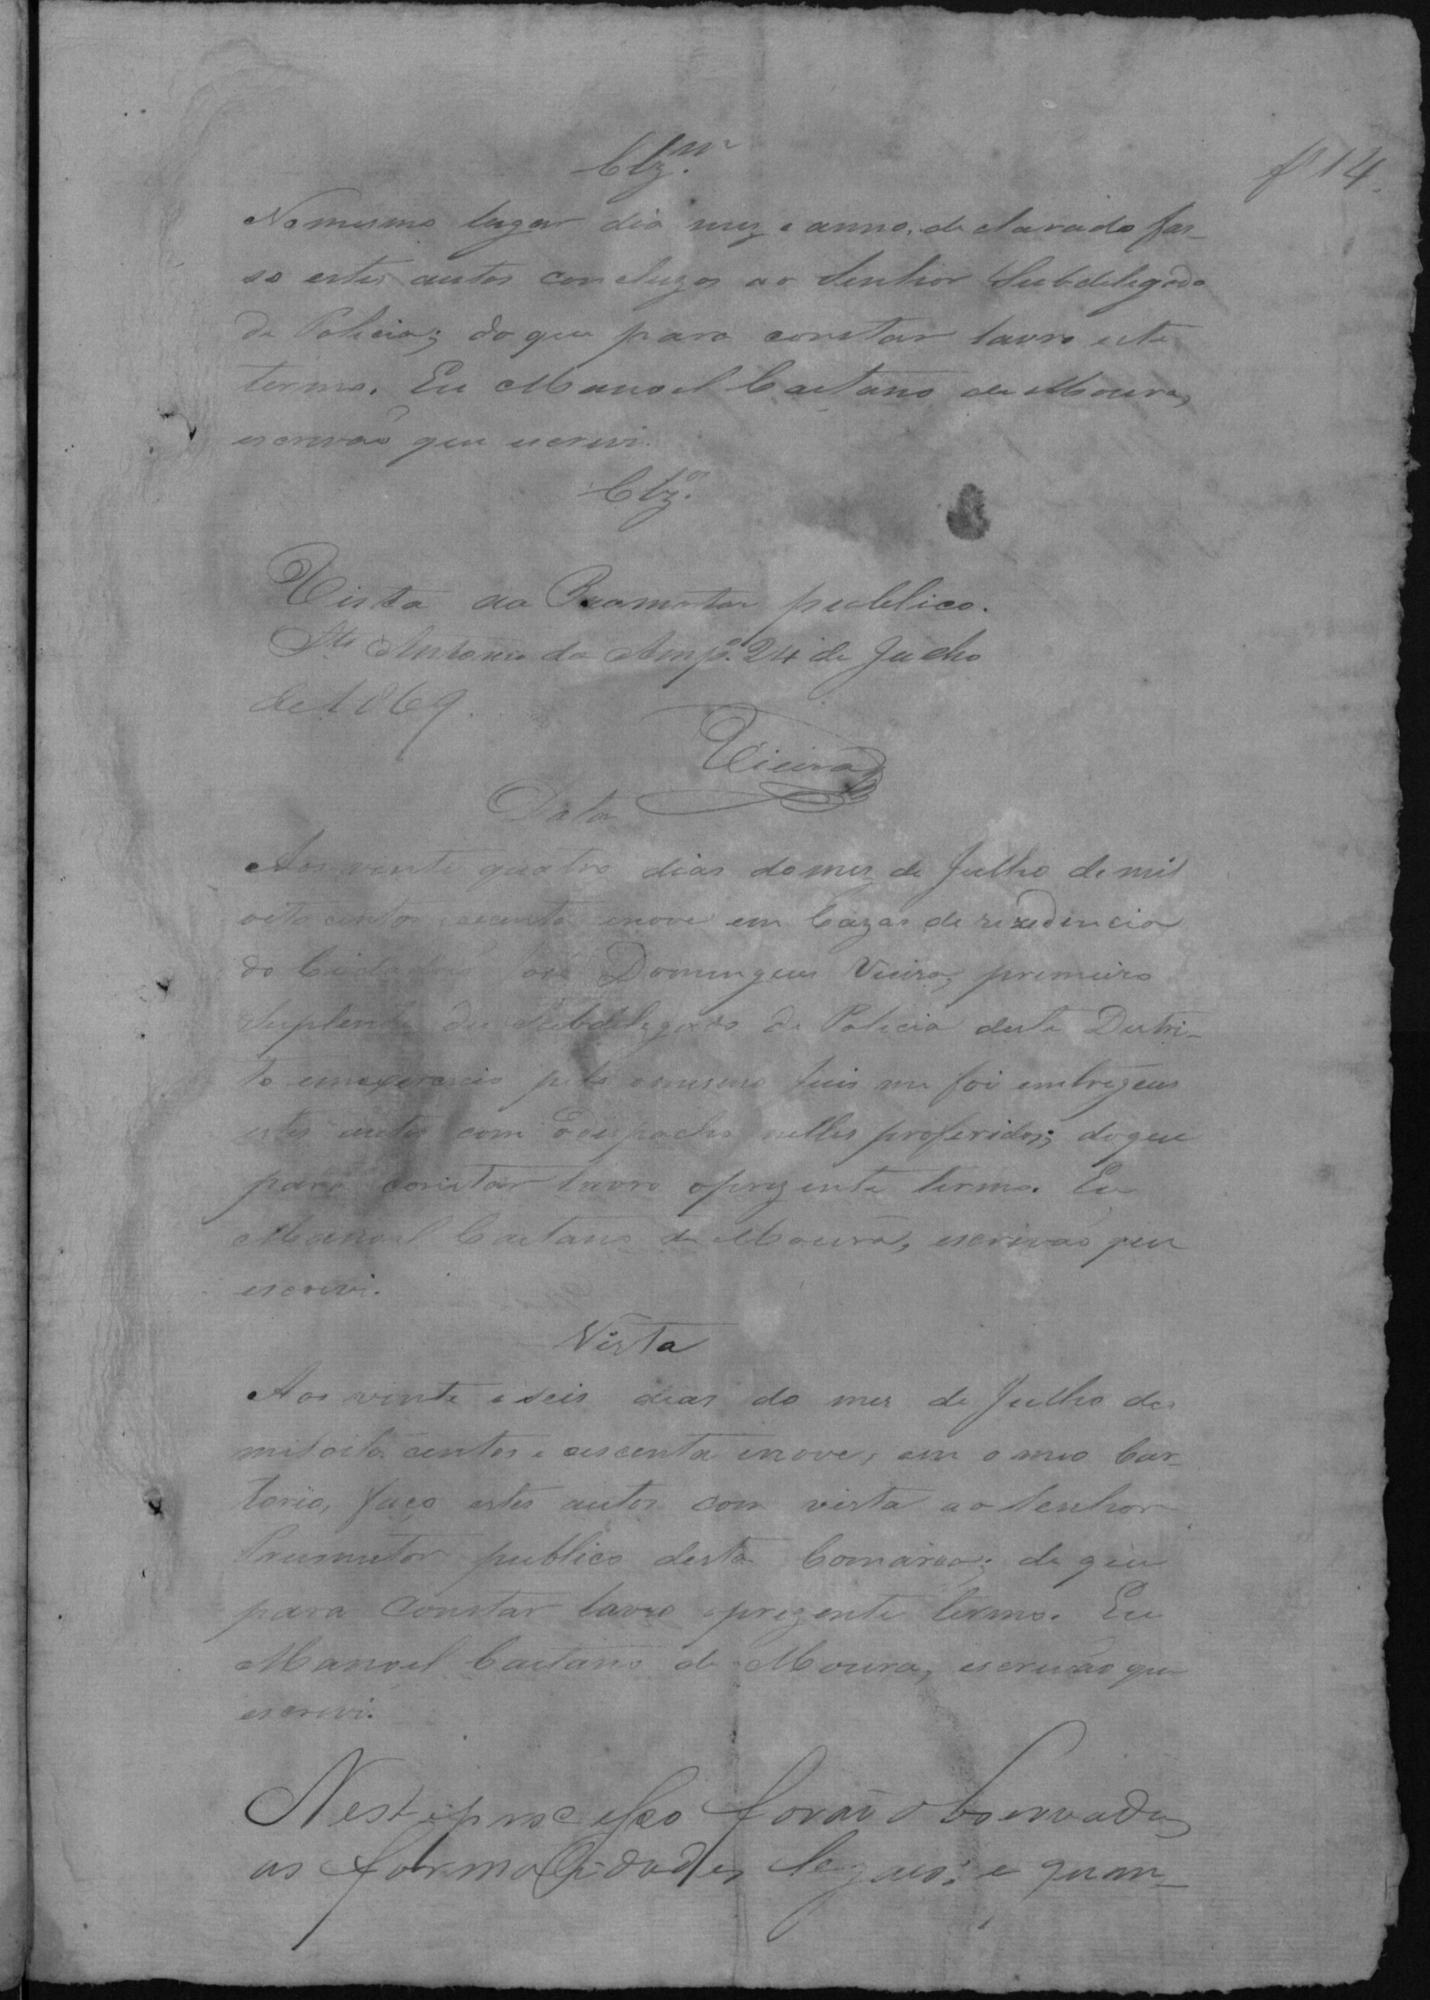 Clz.^m
f 14.
No mesmo lugar dia mez e anno, declarado fas-
so estes autos concluzos ao Senhor Subdelegado
de Policia; do que para constar lavro este
termo. Eu Manoel Caetano de Moura,
escrivaõ que escrevi.
Clz.^o
Vista ao Promotor publico.
S.^to Antonio da Amp.^a 24 de Julho
de 1869.
Vieira
Data
Aos vinte quatro dias do mez de Julho de mil
oito centos e secenta enove em Cazas de rezedencia
do Cidadaõ José Domingues Vieira, premeiro
Suplente do Subdelegado de Policia deste Destri-
to emexercicio pelo o mesmo Juis me foi entregeus
estes autos com o despacho nelles proferidos; do que
para constar lavro o prezente termo. Eu
Manoel Caetano de Moura, escrivaõ que
escrevi.
Vista
Aos vinte e seis dias do mez de Julho de
mil oito centos e sescenta enove, em o meo Car-
torio, faço estes autos com vista ao Senhor
Prumutor publico desta Comarca; de que
para Constar lavro o prezente termo. Eu
Manoel Caetano de Moura, escrivaõ que
escrevi.
Neste processo foraõ observadas
as formalidades legaes; e quan-